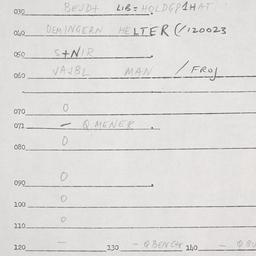 030 BEUD+ LIB= HOLDGP1HAT
040 DEMINGERN HELTER (/120023
050 S+NIR
060 VAJBL MAN / FROJ
070 0
071 - QMENER.
080 0
090 0
100 0
110 0
120 - 130 - QBENCH 140 -